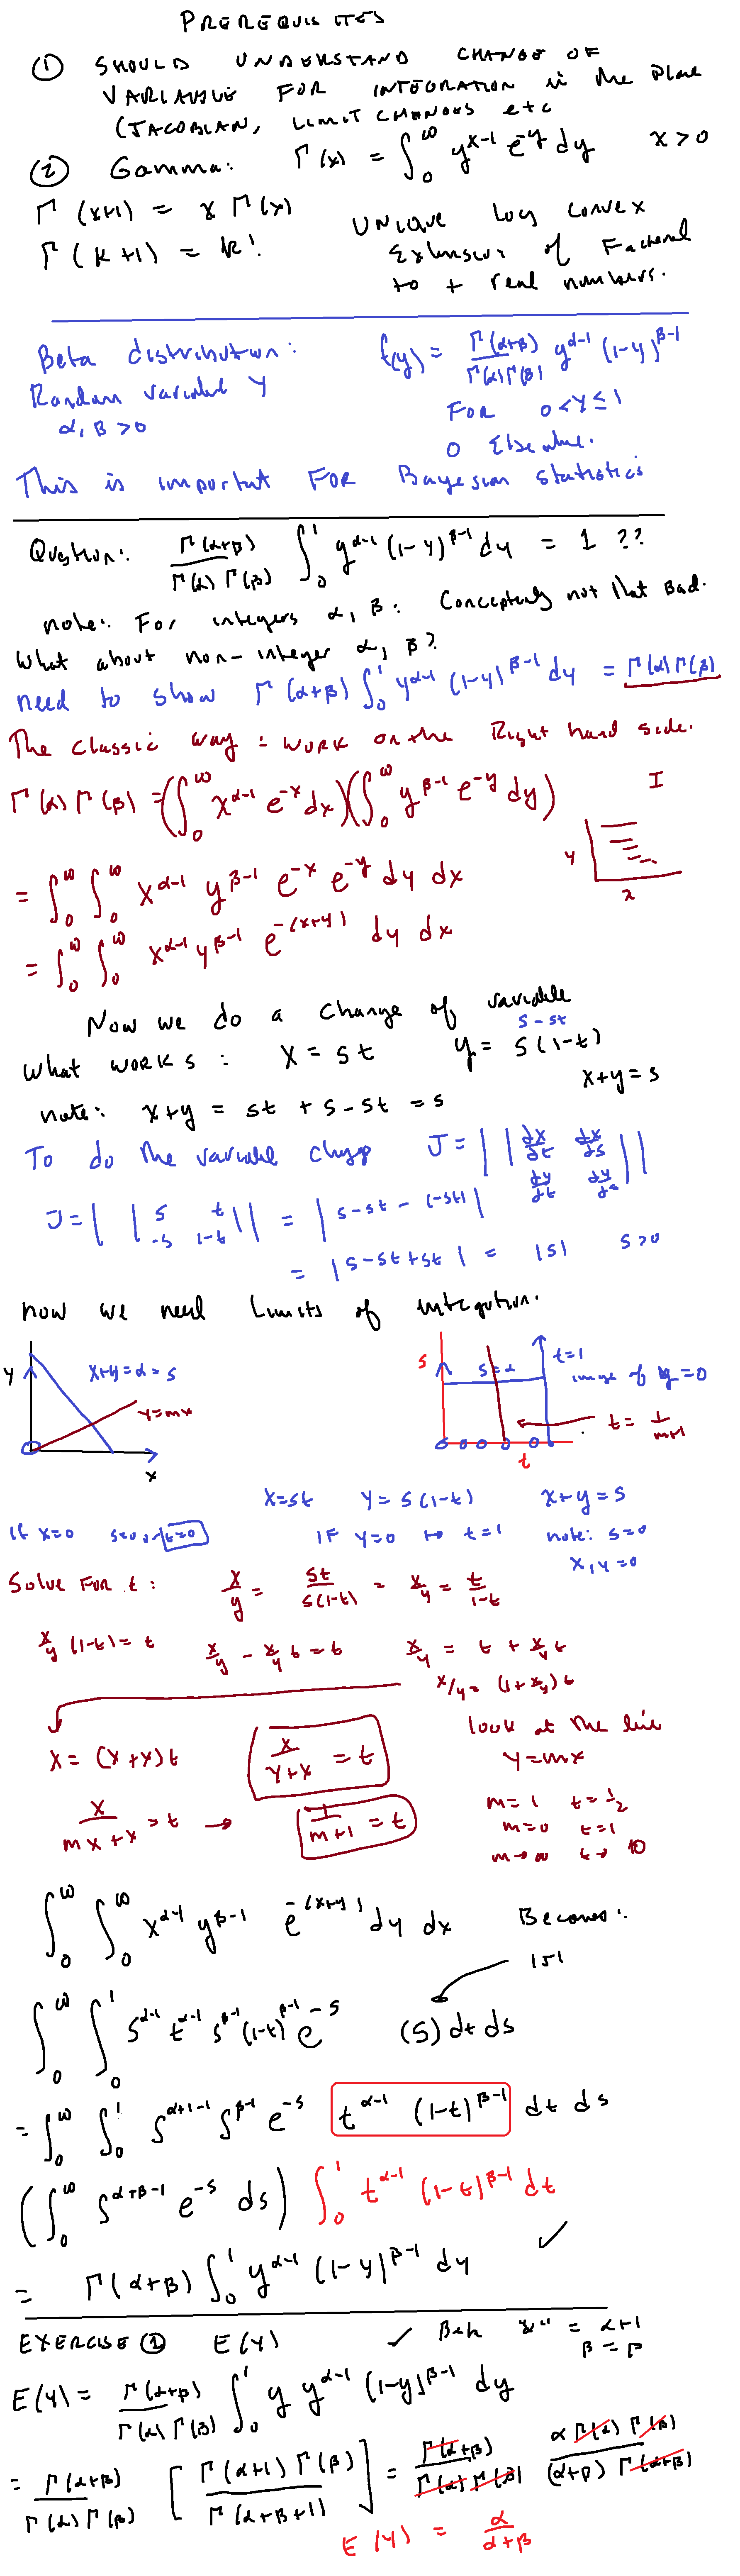 PREREQUISITES
① SHOULD UNDERSTAND CHANGE OF
VARIABLE FOR INTEGRATION in the Plane
(JACOBIAN, LIMIT CHANGES etc
② Gamma: Γ(x) = ∫₀^∞ y^(x-1) e^(-y) dy x > 0
Γ(x+1) = x Γ(x)
Γ(k+1) = k!
UNIQUE Log Convex
Extension of Factorial
to + real numbers.
Beta distribution: f(y) = Γ(α+β)/Γ(α)Γ(β) y^(α-1) (1-y)^(β-1)
Random variable Y
α, β > 0
FOR 0 < y ≤ 1
0 Elsewhere.
This is important FOR Bayesian statistics
Question: Γ(α+β)/Γ(α)Γ(β) ∫₀^1 y^(α-1) (1-y)^(β-1) dy = 1 ??
note: For integers α, β: Conceptually not that Bad.
What about non-integer α, β?
need to show Γ(α+β) ∫₀^1 y^(α-1) (1-y)^(β-1) dy = Γ(α)Γ(β)
The classic way: work on the Right hand side.
Γ(α)Γ(β) = (∫₀^∞ x^(α-1) e^(-x) dx)(∫₀^∞ y^(β-1) e^(-y) dy)
I
y
x
= ∫₀^∞ ∫₀^∞ x^(α-1) y^(β-1) e^(-x) e^(-y) dy dx
= ∫₀^∞ ∫₀^∞ x^(α-1) y^(β-1) e^(-(x+y)) dy dx
Now we do a change of variable
s - st
What works: x = st y = s(1-t)
x+y = s
note: x+y = st + s - st = s
To do the variable chnge J = | |dx/dt dx/ds; dy/dt dy/ds| |
J = | |s t; -s 1-t| | = |s-st-(-st)|
= |s-st+st| = |s| s>0
now we need Limits of integration.
y
x+y=α=s
y=mx
x
s
s=α
t=1
image of y=0
t = 1/(m+1)
t
x=st y=s(1-t) x+y=s
If x=0 s=0 or t=0 IF y=0 t=1 note: s=0
x,y=0
Solve For t: x/y = st/s(1-t) = x/y = t/(1-t)
x/y (1-t) = t x/y - x/y t = t x/y = t + x/y t
x/y = (1+x/y) t
look at the line
x = (y+x)t x/(y+x) = t y=mx
x/(mx+x) = t → 1/(m+1) = t
m=1 t=1/2
m=0 t=1
m→∞ t→0
∫₀^∞ ∫₀^∞ x^(α-1) y^(β-1) e^(-(x+y)) dy dx Becomes:
|s|
∫₀^∞ ∫₀^1 s^(α-1) t^(α-1) s^(β-1) (1-t)^(β-1) e^(-s) (s) dt ds
= ∫₀^∞ ∫₀^1 s^(α+1-1) s^(β-1) e^(-s) t^(α-1) (1-t)^(β-1) dt ds
(∫₀^∞ s^(α+β-1) e^(-s) ds) ∫₀^1 t^(α-1) (1-t)^(β-1) dt
= Γ(α+β) ∫₀^1 y^(α-1) (1-y)^(β-1) dy ✓
EXERCISE ① E(Y) ✓ Beta "α" = α+1
β = β
E(Y) = Γ(α+β)/Γ(α)Γ(β) ∫₀^1 y y^(α-1) (1-y)^(β-1) dy
= Γ(α+β)/Γ(α)Γ(β) [Γ(α+1)Γ(β)/Γ(α+β+1)] = Γ(α+β)/Γ(α)Γ(β) αΓ(α)Γ(β)/(α+β)Γ(α+β)
E(Y) = α/(α+β)